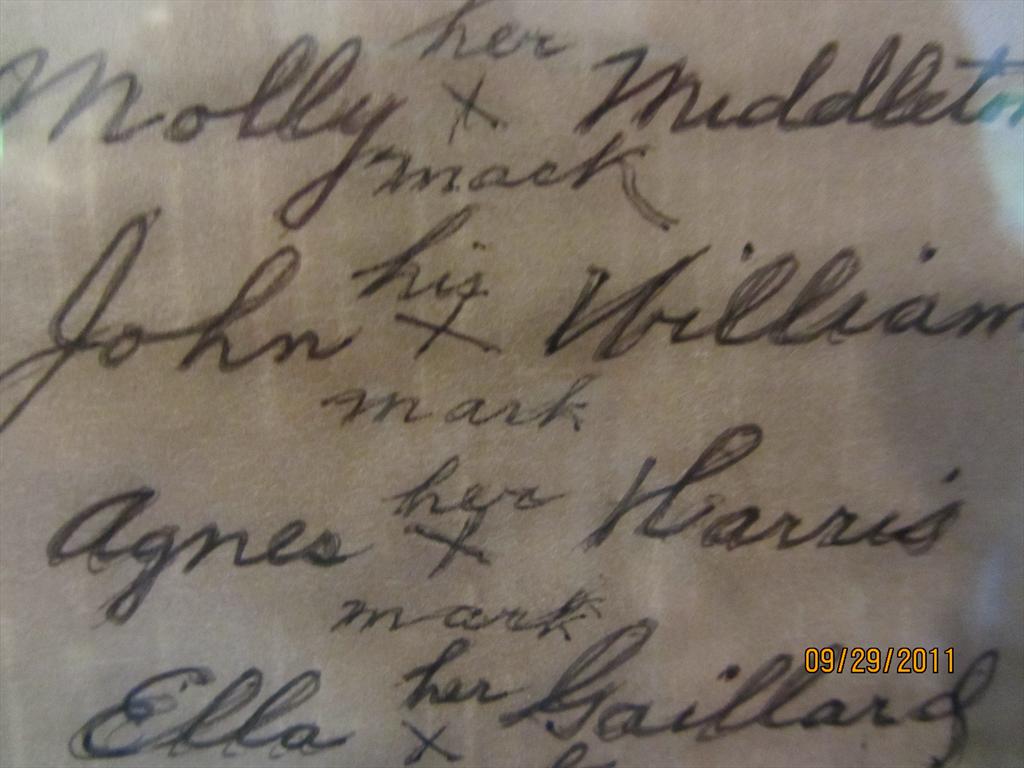 her
Molly x Middleton
mark
his
John x William
mark
her
Agnes x Harris
mark
her
Ella x Gaillard
09/29/2011